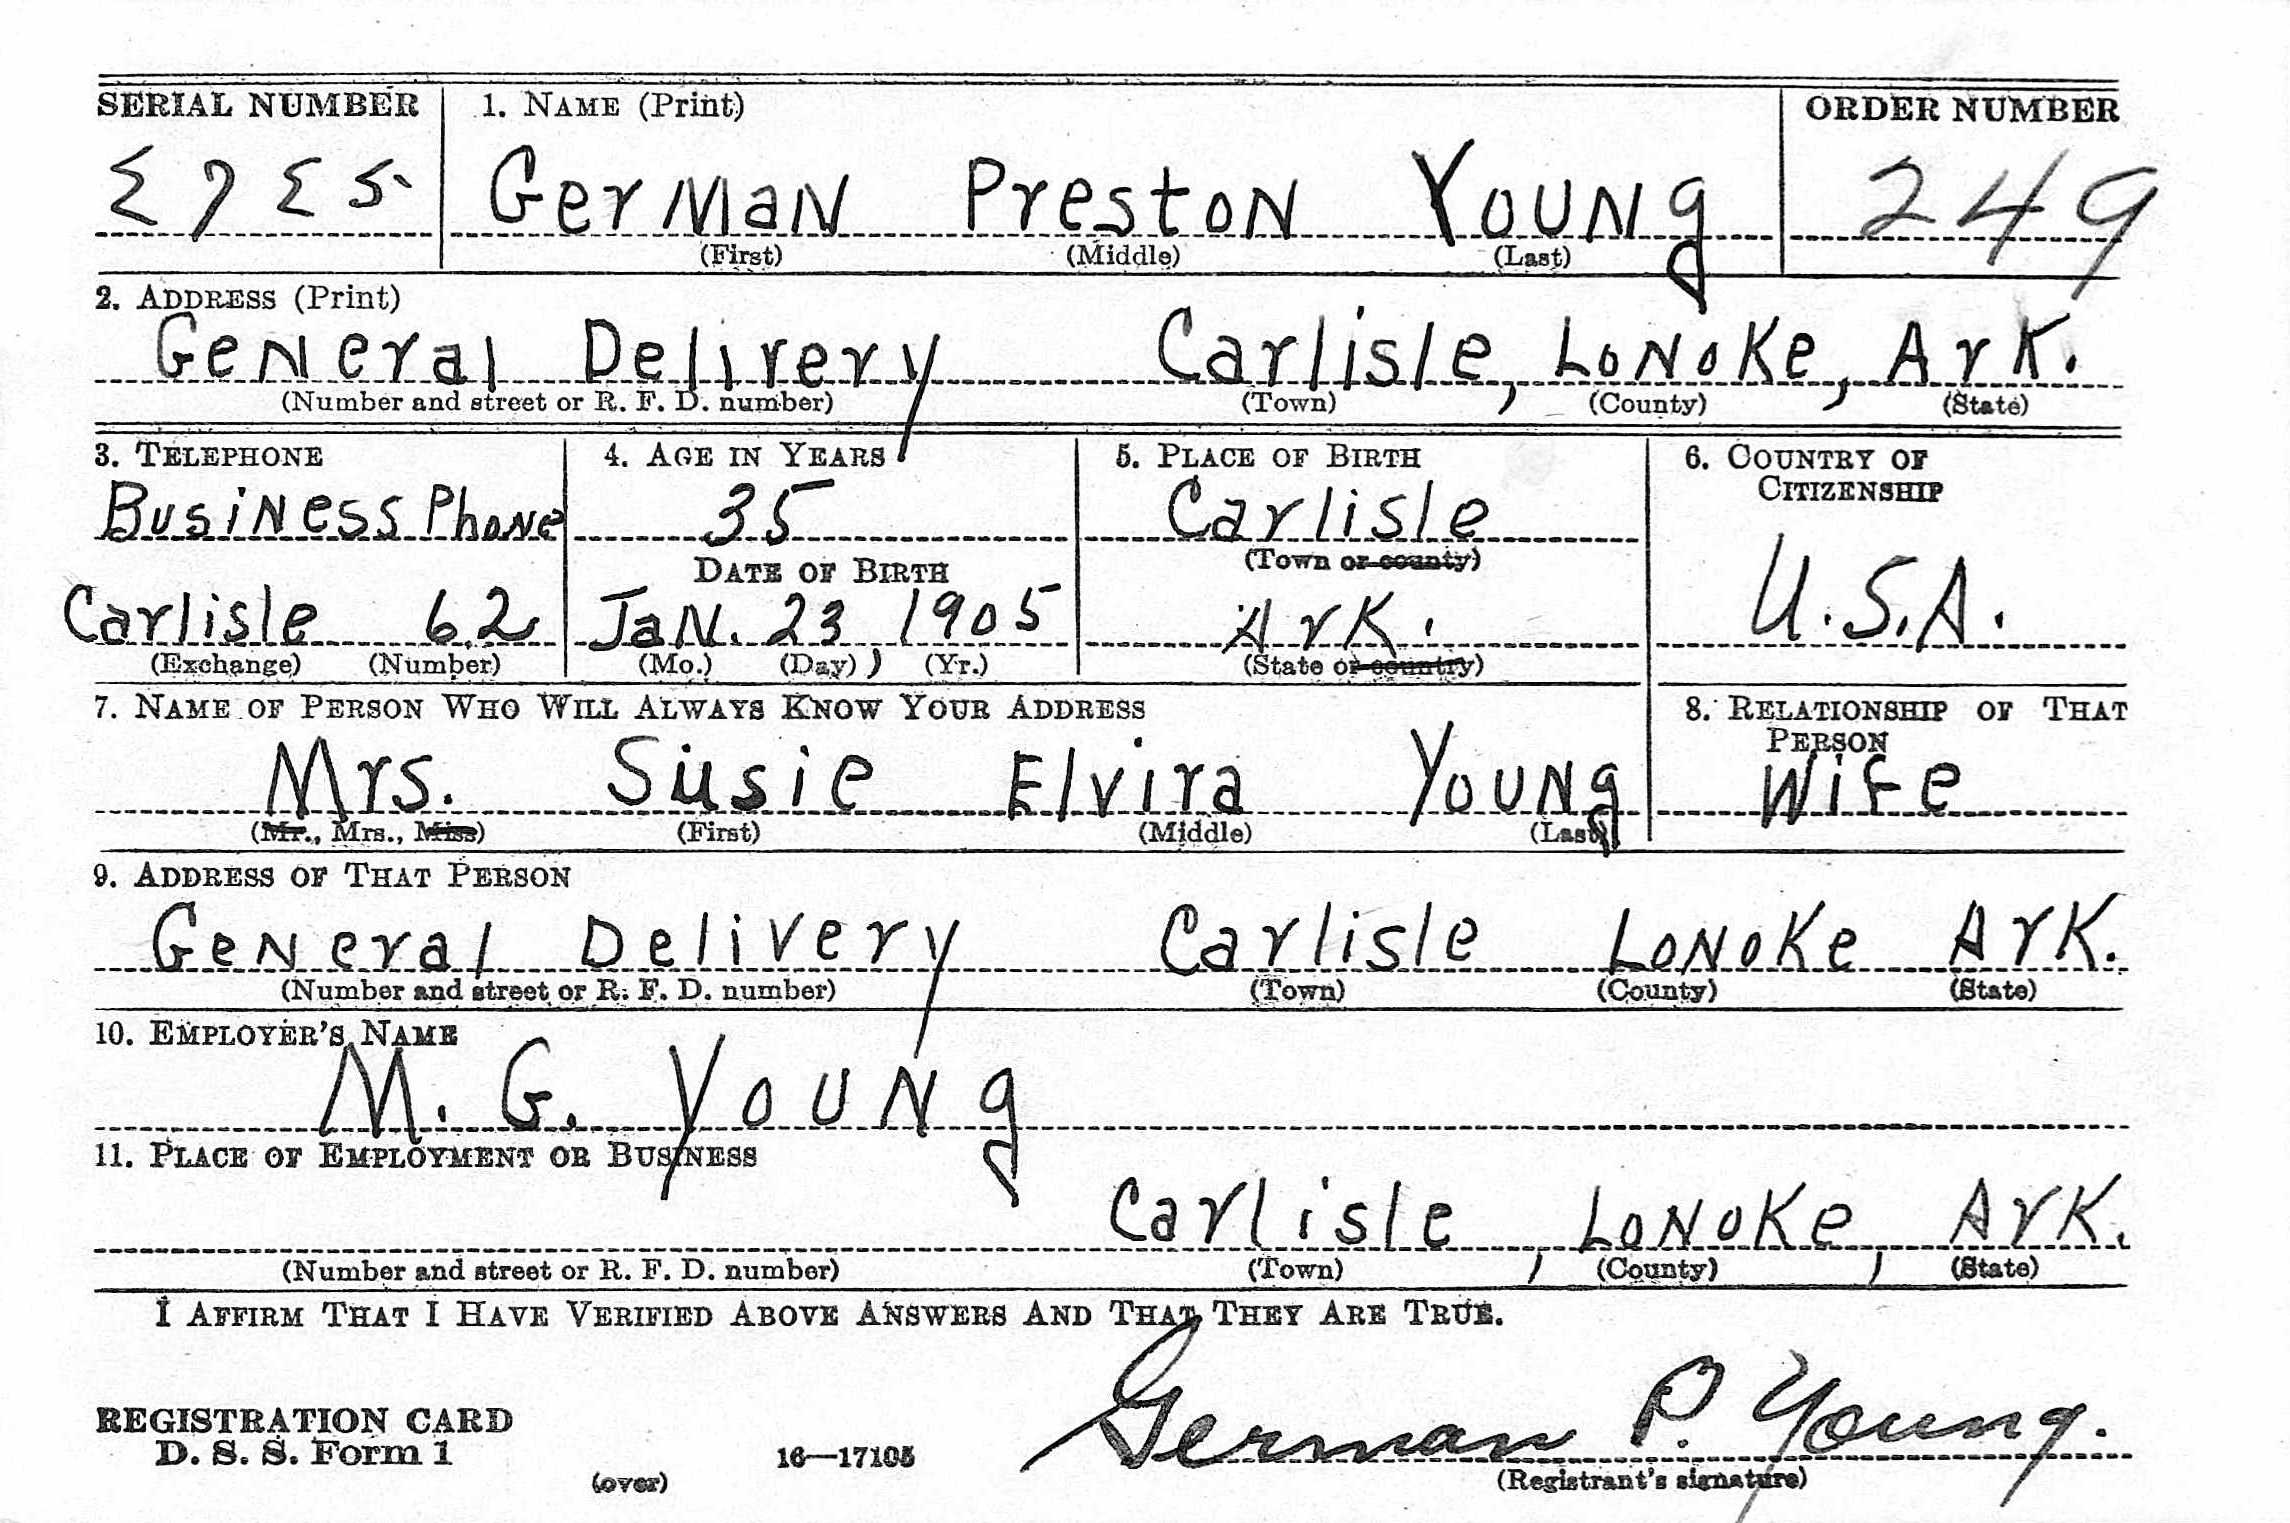 SERIAL NUMBER 1. NAME (Print) ORDER NUMBER
German Preston Young 249
(First) (Middle) (Last)
2. ADDRESS (Print)
General Delivery Carlisle, Lonoke, Ark.
(Number and street or R. F. D. number) (Town) (County) (State)
3. TELEPHONE 4. AGE IN YEARS 5. PLACE OF BIRTH 6. COUNTRY OF CITIZENSHIP
Business Phone 35 Carlisle
DATE OF BIRTH (Town or county)
Carlisle 62 Jan. 23, 1905 Ark. U.S.A.
(Exchange) (Number) (Mo.) (Day) (Yr.) (State or country)
7. NAME OF PERSON WHO WILL ALWAYS KNOW YOUR ADDRESS 8. RELATIONSHIP OF THAT PERSON
Mrs. Susie Elvira Young Wife
(Mr., Mrs., Miss) (First) (Middle) (Last)
9. ADDRESS OF THAT PERSON
General Delivery Carlisle Lonoke Ark.
(Number and street or R. F. D. number) (Town) (County) (State)
10. EMPLOYER'S NAME
M. G. Young
11. PLACE OF EMPLOYMENT OR BUSINESS
Carlisle, Lonoke, Ark.
(Number and street or R. F. D. number) (Town) (County) (State)
I AFFIRM THAT I HAVE VERIFIED ABOVE ANSWERS AND THAT THEY ARE TRUE.
REGISTRATION CARD
D. S. S. Form 1 16—17105 German P. Young.
(over) (Registrant's signature)